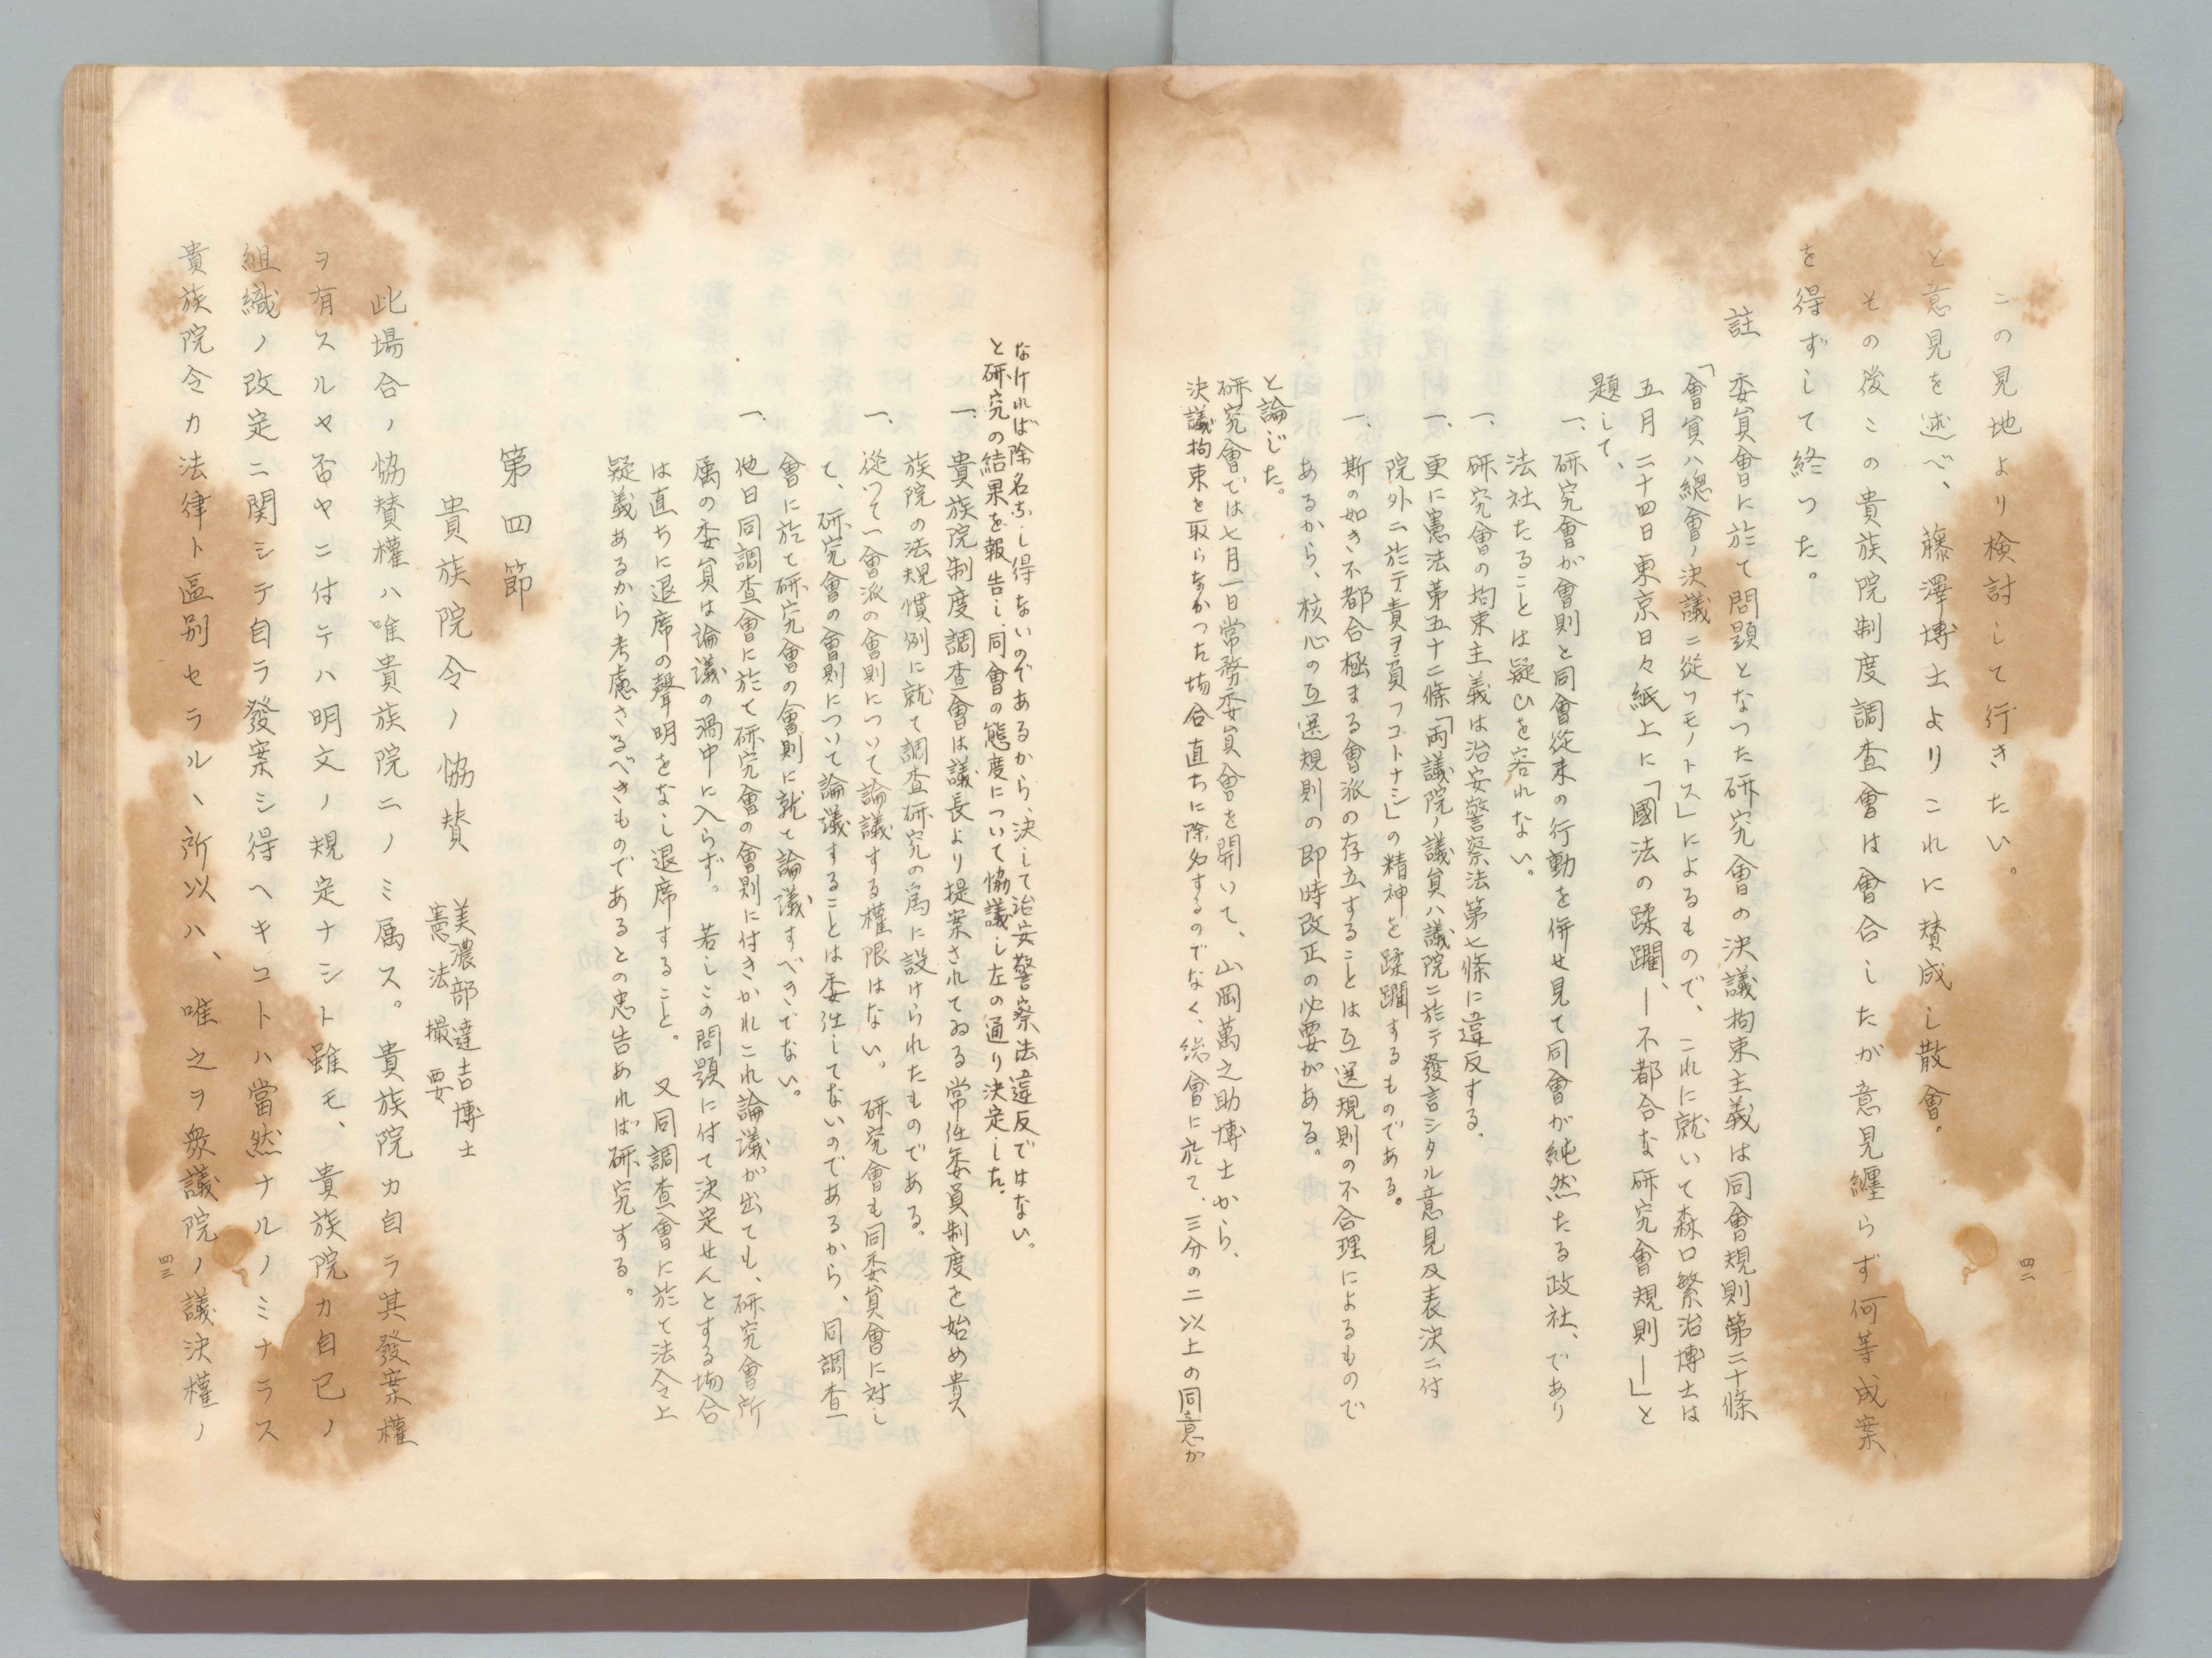 この見地より検討して行きたい。
と意見を述べ、藤澤博士よりこれに賛成し散會。
その後この貴族院制度調査會は會合したが意見纒らず何等成案
を得ずして終つた。
註　委員會に於て問題となつた研究會の決議拘束主義は同會規則第二十條
「會員ハ總會ノ決議ニ從フモノトス」によるもので、これに就いて森口繁治博士は
五月二十四日東京日々紙上に「國法の蹂躙、―不都合な研究會規則―」と
題して、
一、研究會が會則と同會從来の行動を併せ見て同會が純然たる政社、であり
法社たることは疑ひを容れない。
一、研究會の拘束主義は治安警察法第七條に違反する、
一、更に憲法第五十二條「両議院ノ議員ハ議院ニ於テ發言シタル意見及表決ニ付
院外ニ於テ責ヲ負フコトナシ」の精神を蹂躙するものである。
一、斯の如き不都合極まる會派の存立することは互選規則の不合理によるもので
あるから、核心の互選規則の即時改正の必要がある。
と論じた。
研究會では七月一日常務委員會を開いて、山岡萬之助博士から、
決議拘束を取らなかつた場合直ちに除名するのでなく、総會に於て、三分の二以上の同意が
四二
なければ除名なし得ないのであるから、決して治安警察法違反ではない。
と研究の結果を報告し、同會の態度について協議し左の通り決定した。
一、貴族院制度調査會は議長より提案されてゐる常任委員制度を始め貴
族院の法規慣例に就て調査研究の為に設けられたものである。
一、従つて一會派の會則について論議する權限はない。研究會も同委員會に対し
て、研究會の會則について論議することは委任してないのであるから、同調査
會に於て研究會の會則に就て論議すべきでない。
一、他日同調査會に於て研究會の會則に付きかれこれ論議が出ても、研究會所
属の委員は論議の渦中に入らず。若しこの問題に付て決定せんとする場合
は直ちに退席の聲明をなし退席すること。又同調査會に於て法令上
疑義あるから考慮さるべきものであるとの忠告あれば研究する。
第四節
貴族院令ノ協賛　美濃部達吉博士
憲法撮要
此場合ノ協賛權ハ唯貴族院ニノミ属ス。貴族院カ自ラ其發案權
ヲ有スルヤ否ヤニ付テハ明文ノ規定ナシト雖モ、貴族院カ自己ノ
組織ノ改定ニ関シテ自ラ發案シ得ヘキコトハ當然ナルノミナラス
貴族院令カ法律ト區別セラルヽ所以ハ、唯之ヲ衆議院ノ議決權ノ
四三